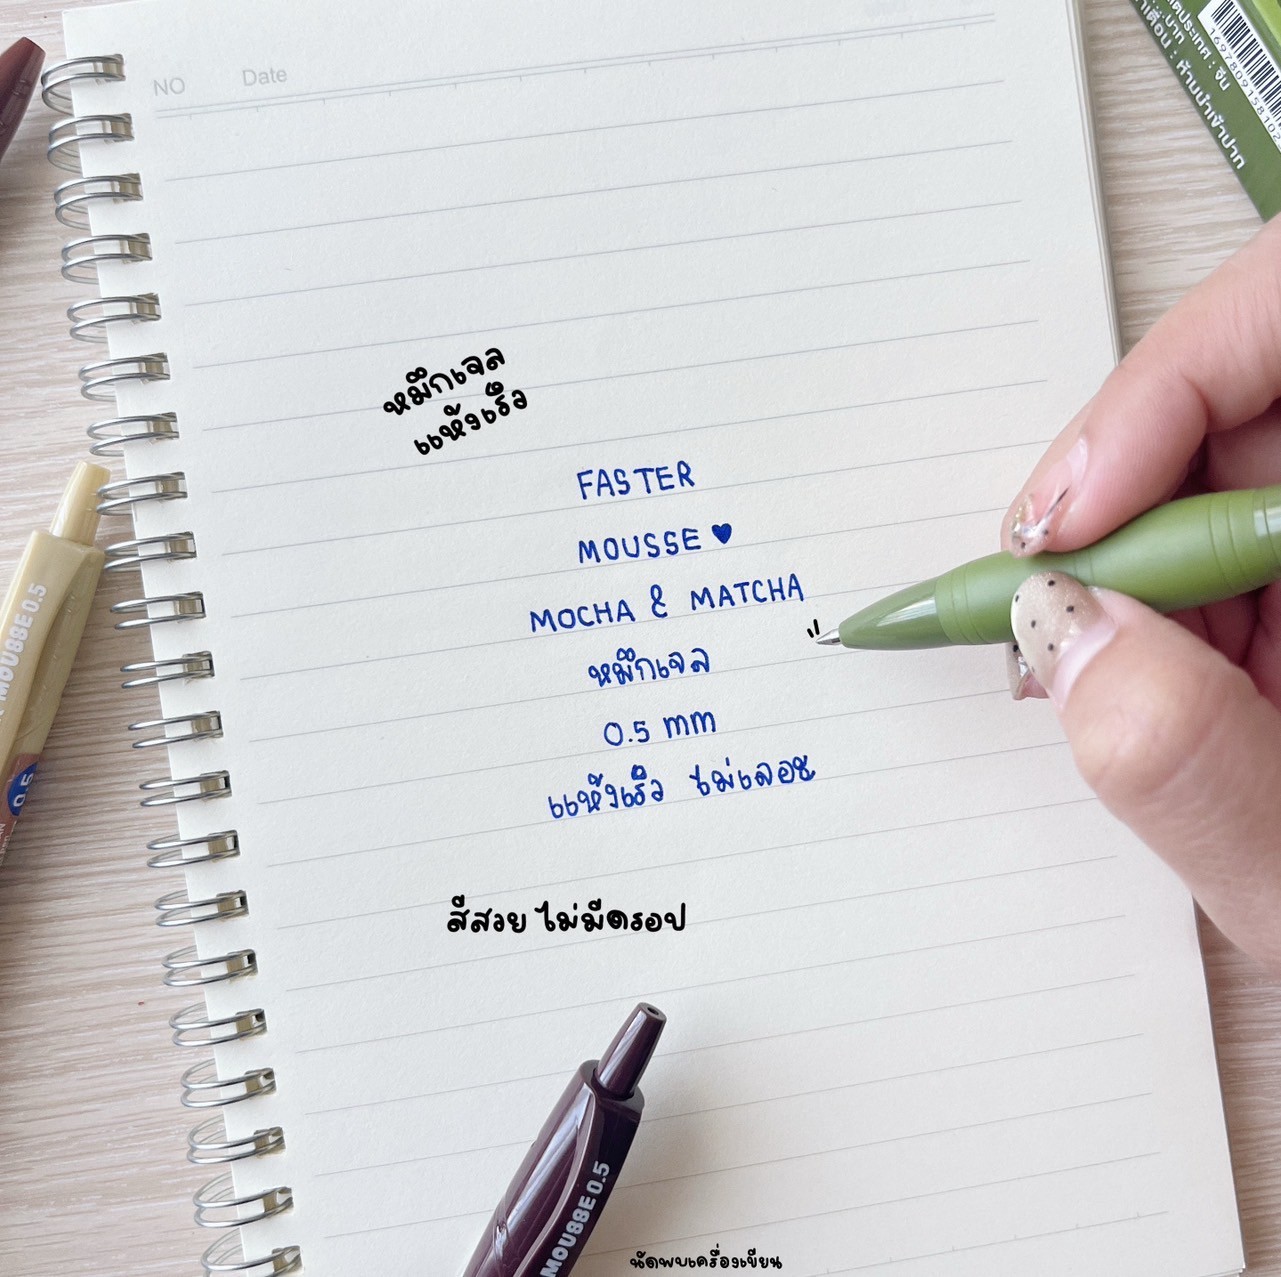 NO Date
หมึกเจล
แห้งเร็ว
FASTER
MOUSSE ♥
MOCHA & MATCHA
หมึกเจล
0.5 mm
แห้งเร็ว ไม่เลอะ
สีสวย ไม่มีดรอป
MOUSSE 0.5
0.5
MOUSSE 0.5
นัดพบเครื่องเขียน
ประเทศ : จีน
ปาก
เตือน : ห้ามนำเข้าปาก